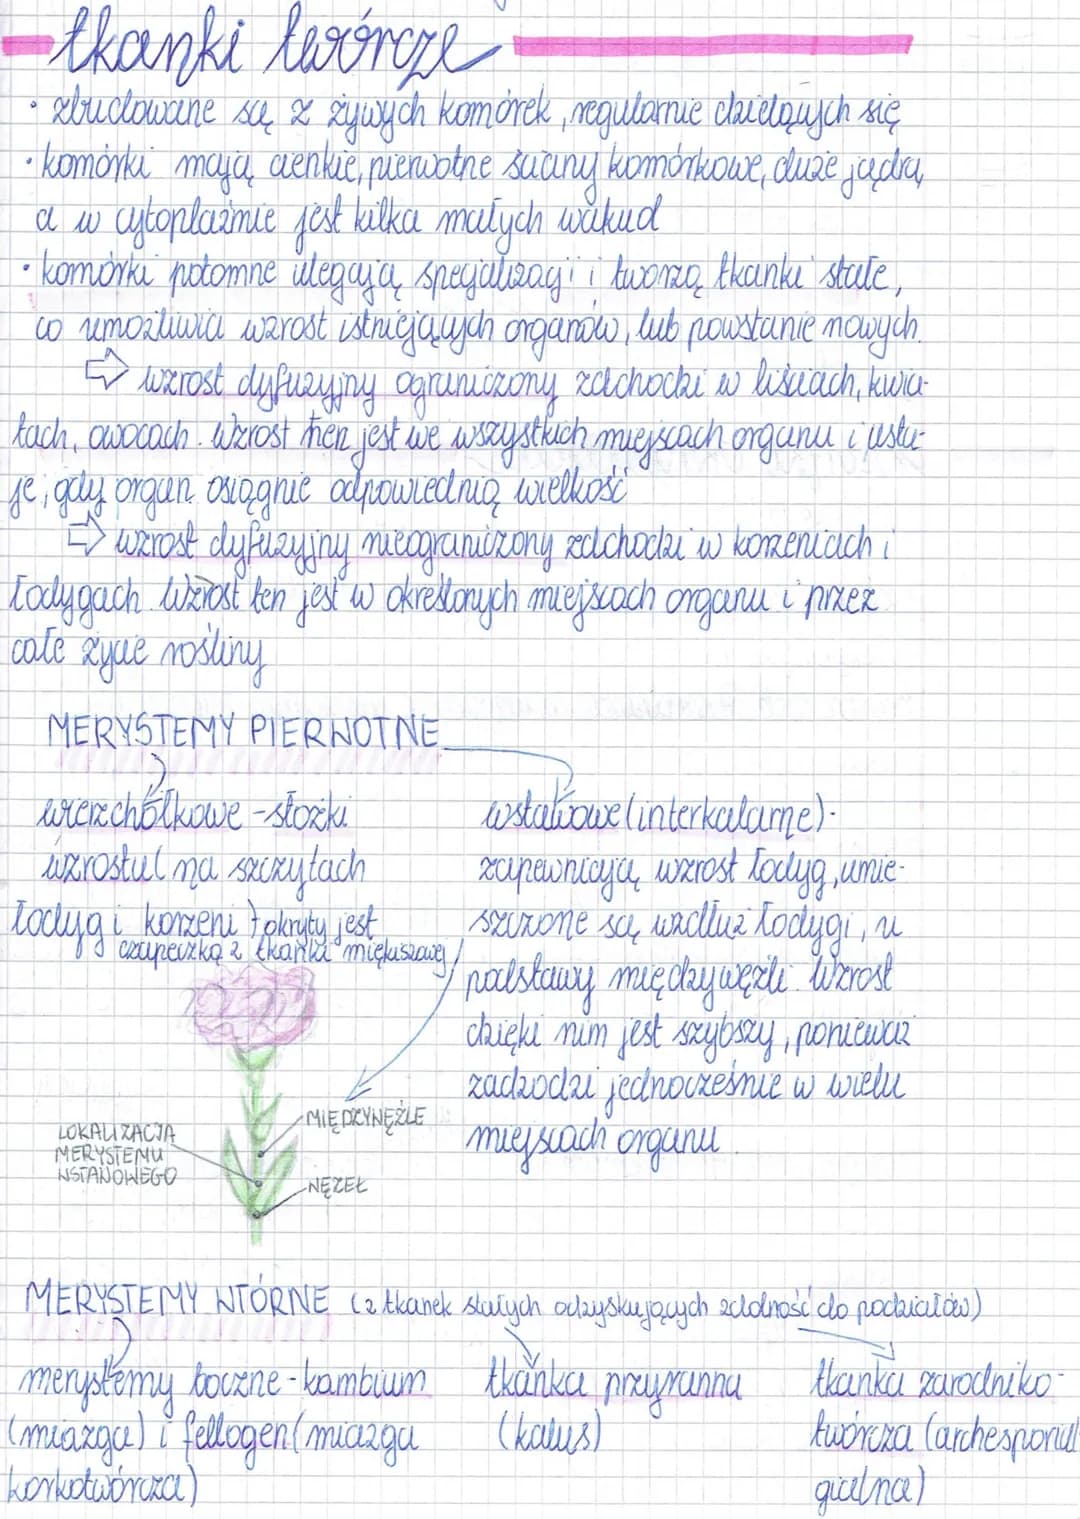 tkanki twórcze
• zbudowane są z żywych komórek, regularnie dzielących się
• komórki mają cienkie, pierwotne ściany komórkowe, duże jądra,
a w cytoplaźmie jest kilka małych wakuol
• komórki potomne ulegają specjalizacji i tworzą tkanki stałe,
co umożliwia wzrost istniejących organów, lub powstanie nowych.
⇨ wzrost dyfuzyjny ograniczony zachodzi w liściach, kwia-
tach, owocach. Wzrost ten jest we wszystkich miejscach organu i usta-
je, gdy organ osiągnie odpowiednią wielkość
⇨ wzrost dyfuzyjny nieograniczony zachodzi w korzeniach i
łodygach. Wzrost ten jest w określonych miejscach organu i przez
całe życie rośliny
MERYSTEMY PIERWOTNE
wierzchołkowe - stożki
wzrostu (na szczytach
łodyg i korzeni) okryty jest
czapeczką z tkanki miękiszowej
wstawowe (interkalarne) -
zapewniają wzrost łodyg, umie-
szczone są wzdłuż łodygi, u
podstawy międzywęźli. Wzrost
dzięki nim jest szybszy, ponieważ
zachodzi jednocześnie w wielu
miejscach organu.
MIĘDZYWĘŹLE
LOKALIZACJA
MERYSTEMU
WSTAWOWEGO
WĘZEŁ
MERYSTEMY WTÓRNE (z tkanek stałych odzyskujących zdolność do podziałów)
merystemy boczne - kambium
(miazga) i fellogen (miazga
korkotwórcza)
tkanka przyranna
(kalus)
tkanka zarodniko-
twórcza (archesporial
gialna)